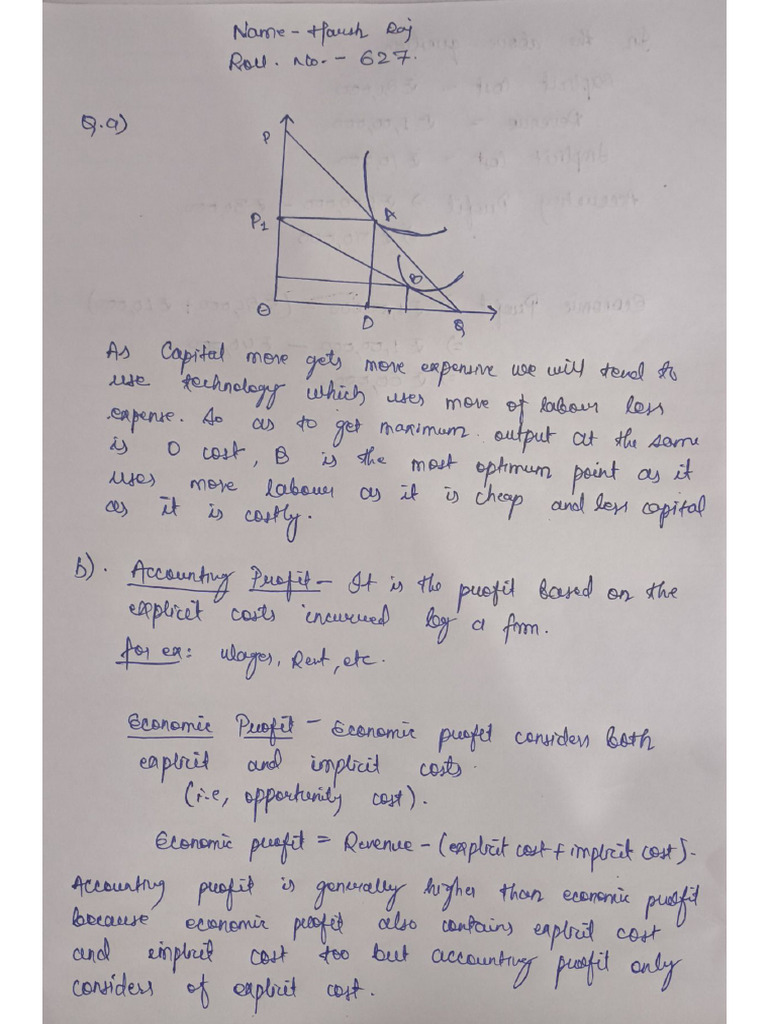 Name - Harsh Raj
Roll. No. - 627.
Q.a)
P
P1
A
B
O
D
Q
As Capital more gets more expensive we will tend to
use technology which uses more of labour less
expense. So as to get maximum output at the same
is O cost, B is the most optimum point as it
uses more labour as it is cheap and less capital
as it is costly.
b). Accounting Profit - It is the profit based on the
explicit costs incurred by a firm.
for ex: Wages, Rent, etc.
Economic Profit - Economic profit considers both
explicit and implicit costs.
(i.e, opportunity cost).
Economic profit = Revenue - (explicit cost + implicit cost).
Accounting profit is generally higher than economic profit
because economic profit also contains explicit cost
and implicit cost too but accounting profit only
considers of explicit cost.